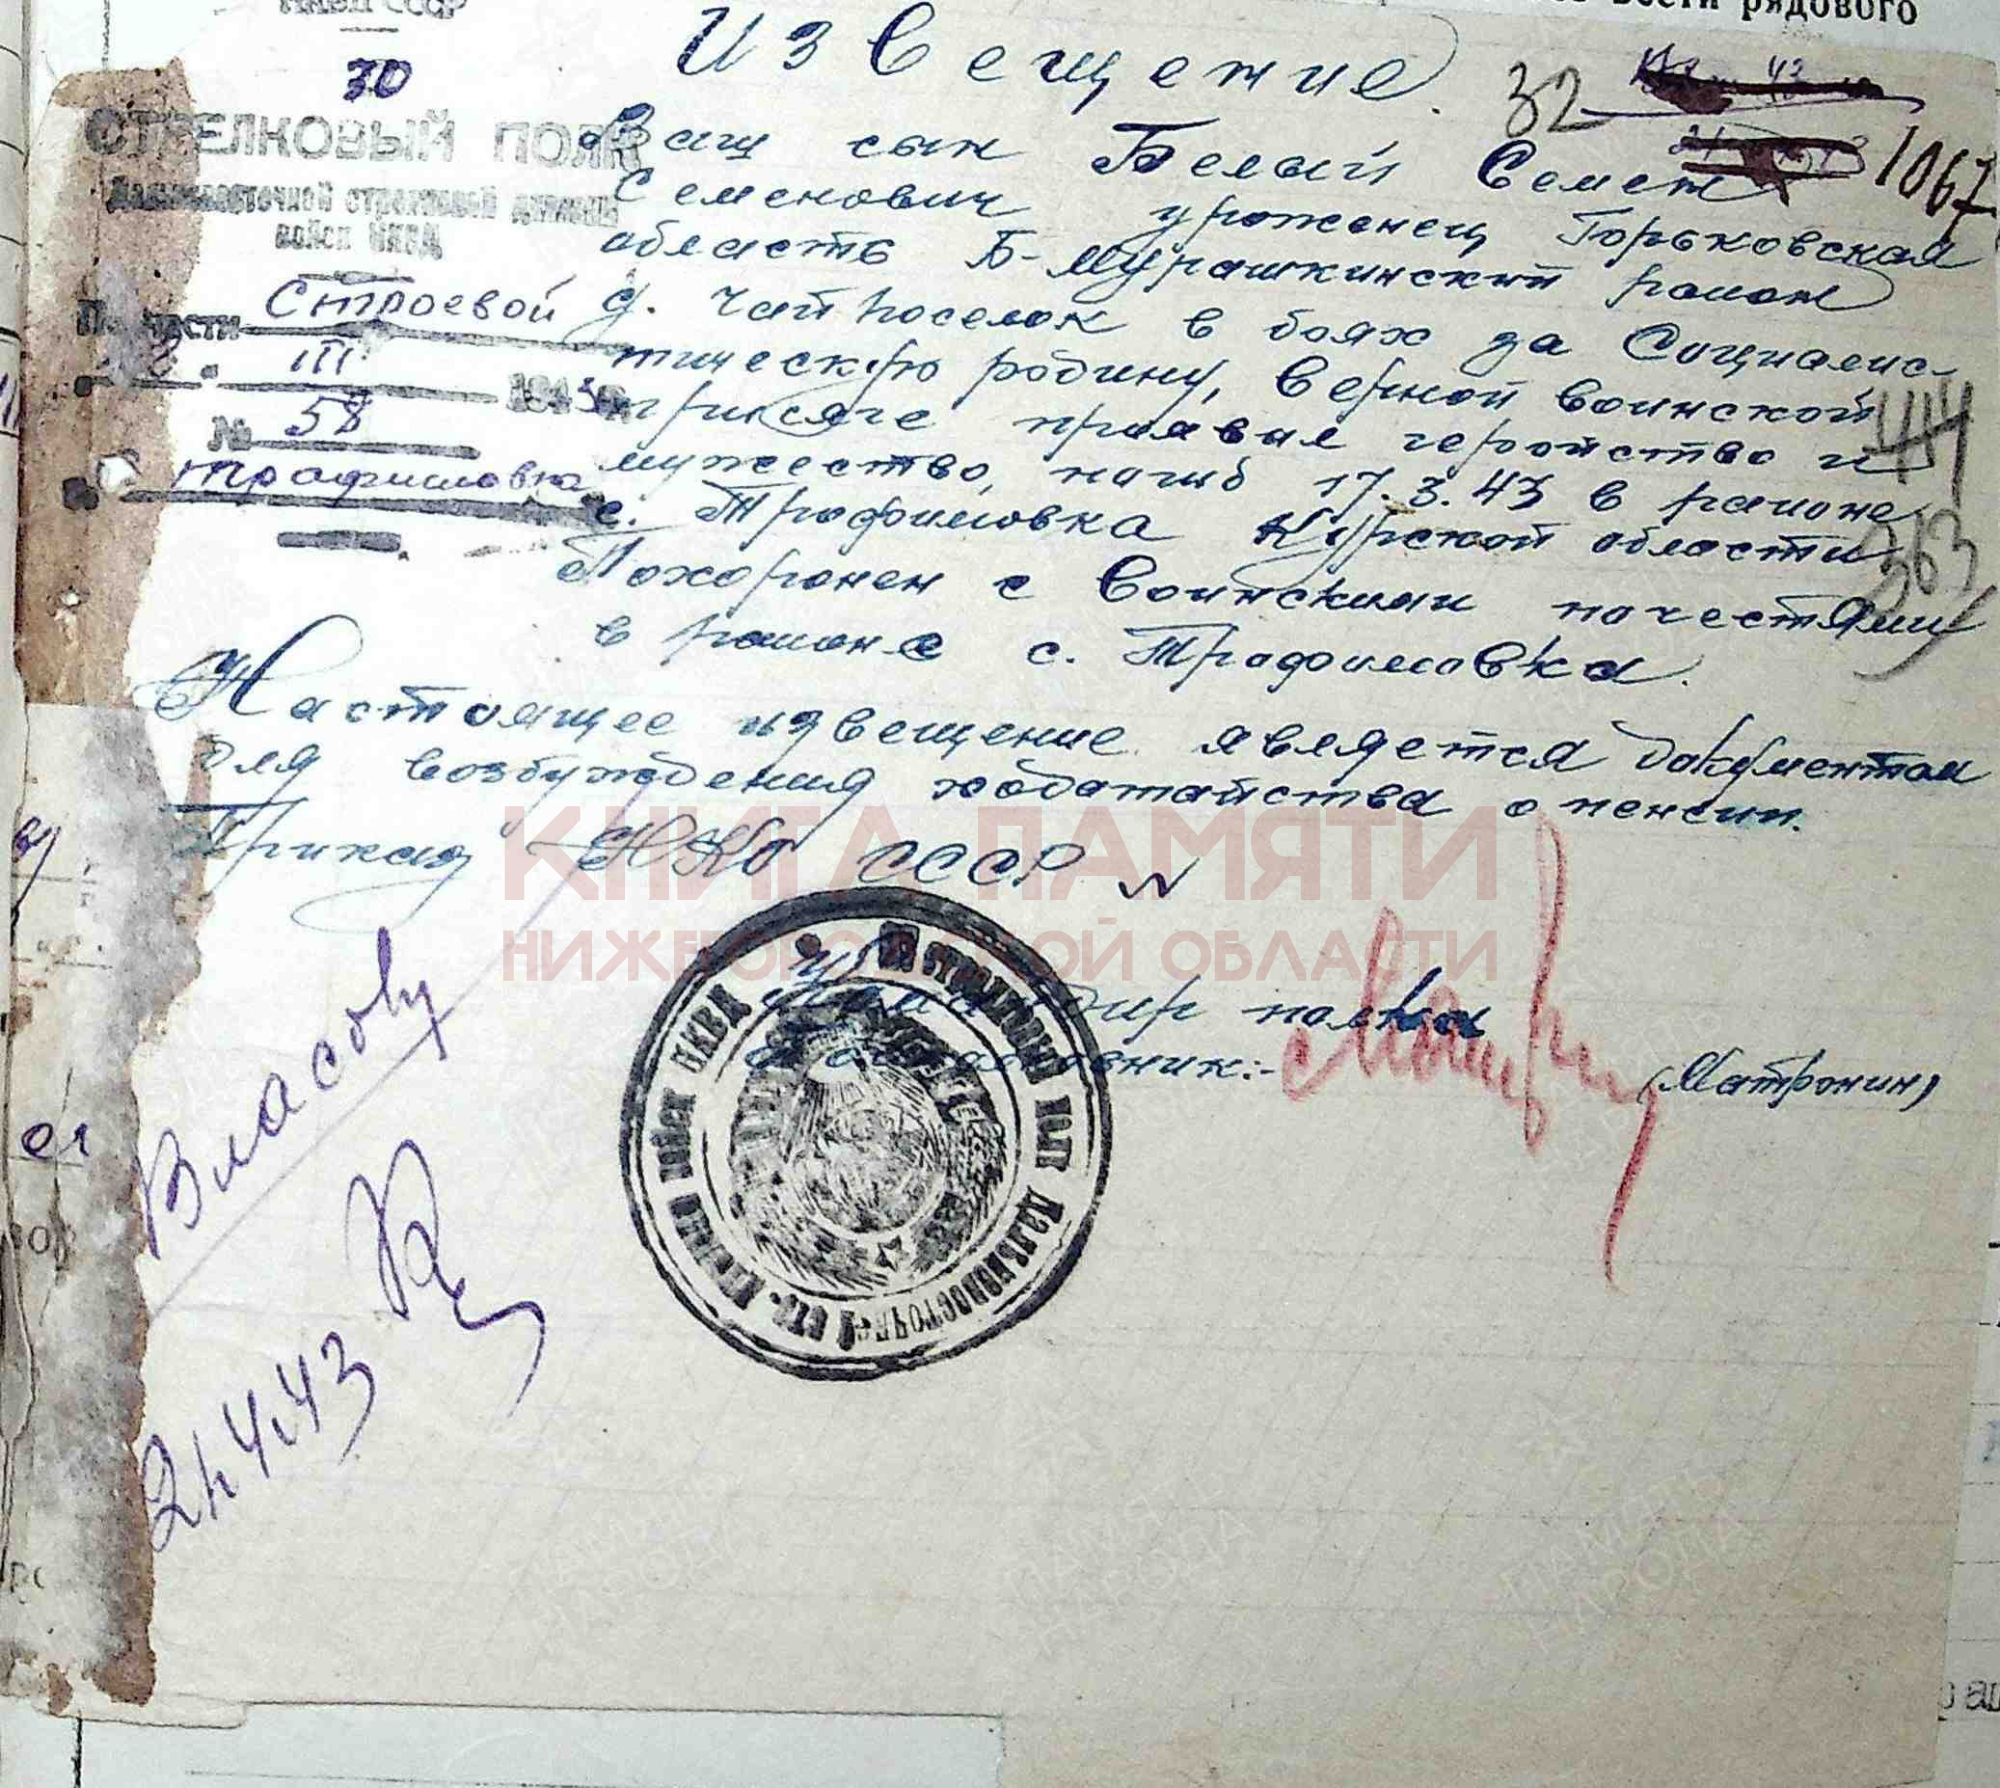 НКВД СССР
рядового
30
СТРЕЛКОВЫЙ ПОЛК
Дальневосточной стрелковой дивизии
войск НКВД
По части Строевой
III 1943
№ 58
Трафимовка
Извещение.
32
1067
Ваш сын Белый Семен
Семенович уроженец Горьковская
область Б-Мурашкинский район
д. посёлок в боях за Социалис-
тическую родину, верной воинской
присяге проявил геройство и
мужество, погиб 17.3.43 в районе
с. Трафимовка Курской области
Похоронен с воинскими почестями
в районе с. Трафимовка.
414
363
Настоящее извещение является документом
для возбуждения ходатайства о пенсии.
Приказ НКО СССР №
КНИГА ПАМЯТИ
НИЖЕГОРОДСКОЙ ОБЛАСТИ
Командир полка
Подполковник:- (Матронин)
Власову
24.4.43
ПАМЯТЬ НАРОДА